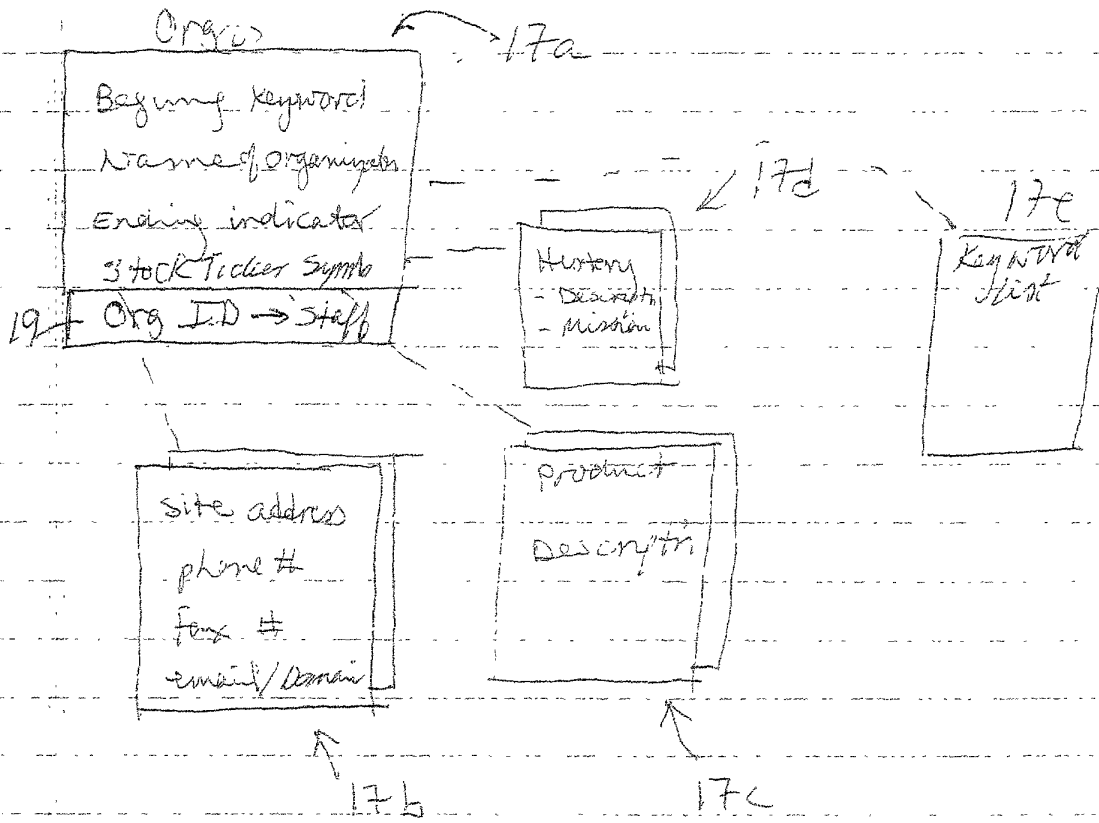 17a
Beginning keyword
Name of Organization
Ending indicator
Stock Ticker Symb
19 Org I.D → Staff
17d
History
- Descriptn
- Mission
17e
Keyword
List
site address
phone #
fax #
email/Domain
17b
product
Descriptn
17c